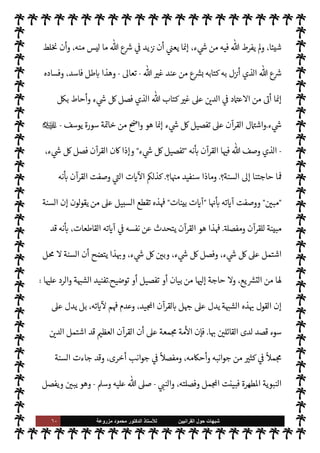 شيئا، ولم يفرط الله فيه من شيء، إنما يعني أن نزيد في شرع الله ما ليس منه، وأن نخلط
شرع الله الذي أنزل به كتابه بشرع من عند غير الله - تعالى - وهذا باطل فاسد، وفساده
إنما أتى من الاعتماد في الدين على غير كتاب الله الذي فصل كل شيء وأحاط بكل
شيء.واشتمال القرآن على تفصيل كل شيء إنما هو واضح من خاتمة سورة يوسف -
- الذي وصف الله فيها القرآن بأنه "تفصيل كل شيء" وإذا كان القرآن فصل كل شيء،
فما حاجتنا إلى السنة؟. وماذا سنفيد منها؟.كذلكم الآيات التي وصفت القرآن بأنه
"مبين" ووصفت آياته بأنها "آيات بينات" فهذه تقطع السبيل على من يقولون إن السنة
مبينة للقرآن ومفصلة. فهذا هو القرآن يتحدث عن نفسه في آياته القاطعات، بأنه قد
اشتمل على كل شيء، وفصل كل شيء، وبين كل شيء، وبهذا يتضح أن السنة لا محل
لها من التشريع، ولا حاجة إليها من بيان أو تفصيل أو توضيح.تفنيد الشبهة والرد عليها :
إن القول بهذه الشبهة يدل على جهل بالقرآن المجيد، وعدم فهم لآياته، بل يدل على
سوء قصد لدى القائلين بها. فإن الأمة مجمعة على أن القرآن العظيم قد اشتمل الدين
مجملاً في كثير من جوانبه وأحكامه، ومفصلاً في جوانب أخرى، وقد جاءت السنة
النبوية المطهرة فبينت المجمل وفصلته، والنبي - صلى الله عليه وسلم - وهو يبين ويفصل
شبهات حول القرآنيين للأستاذ الدكتور محمود مزروعة ٦٠